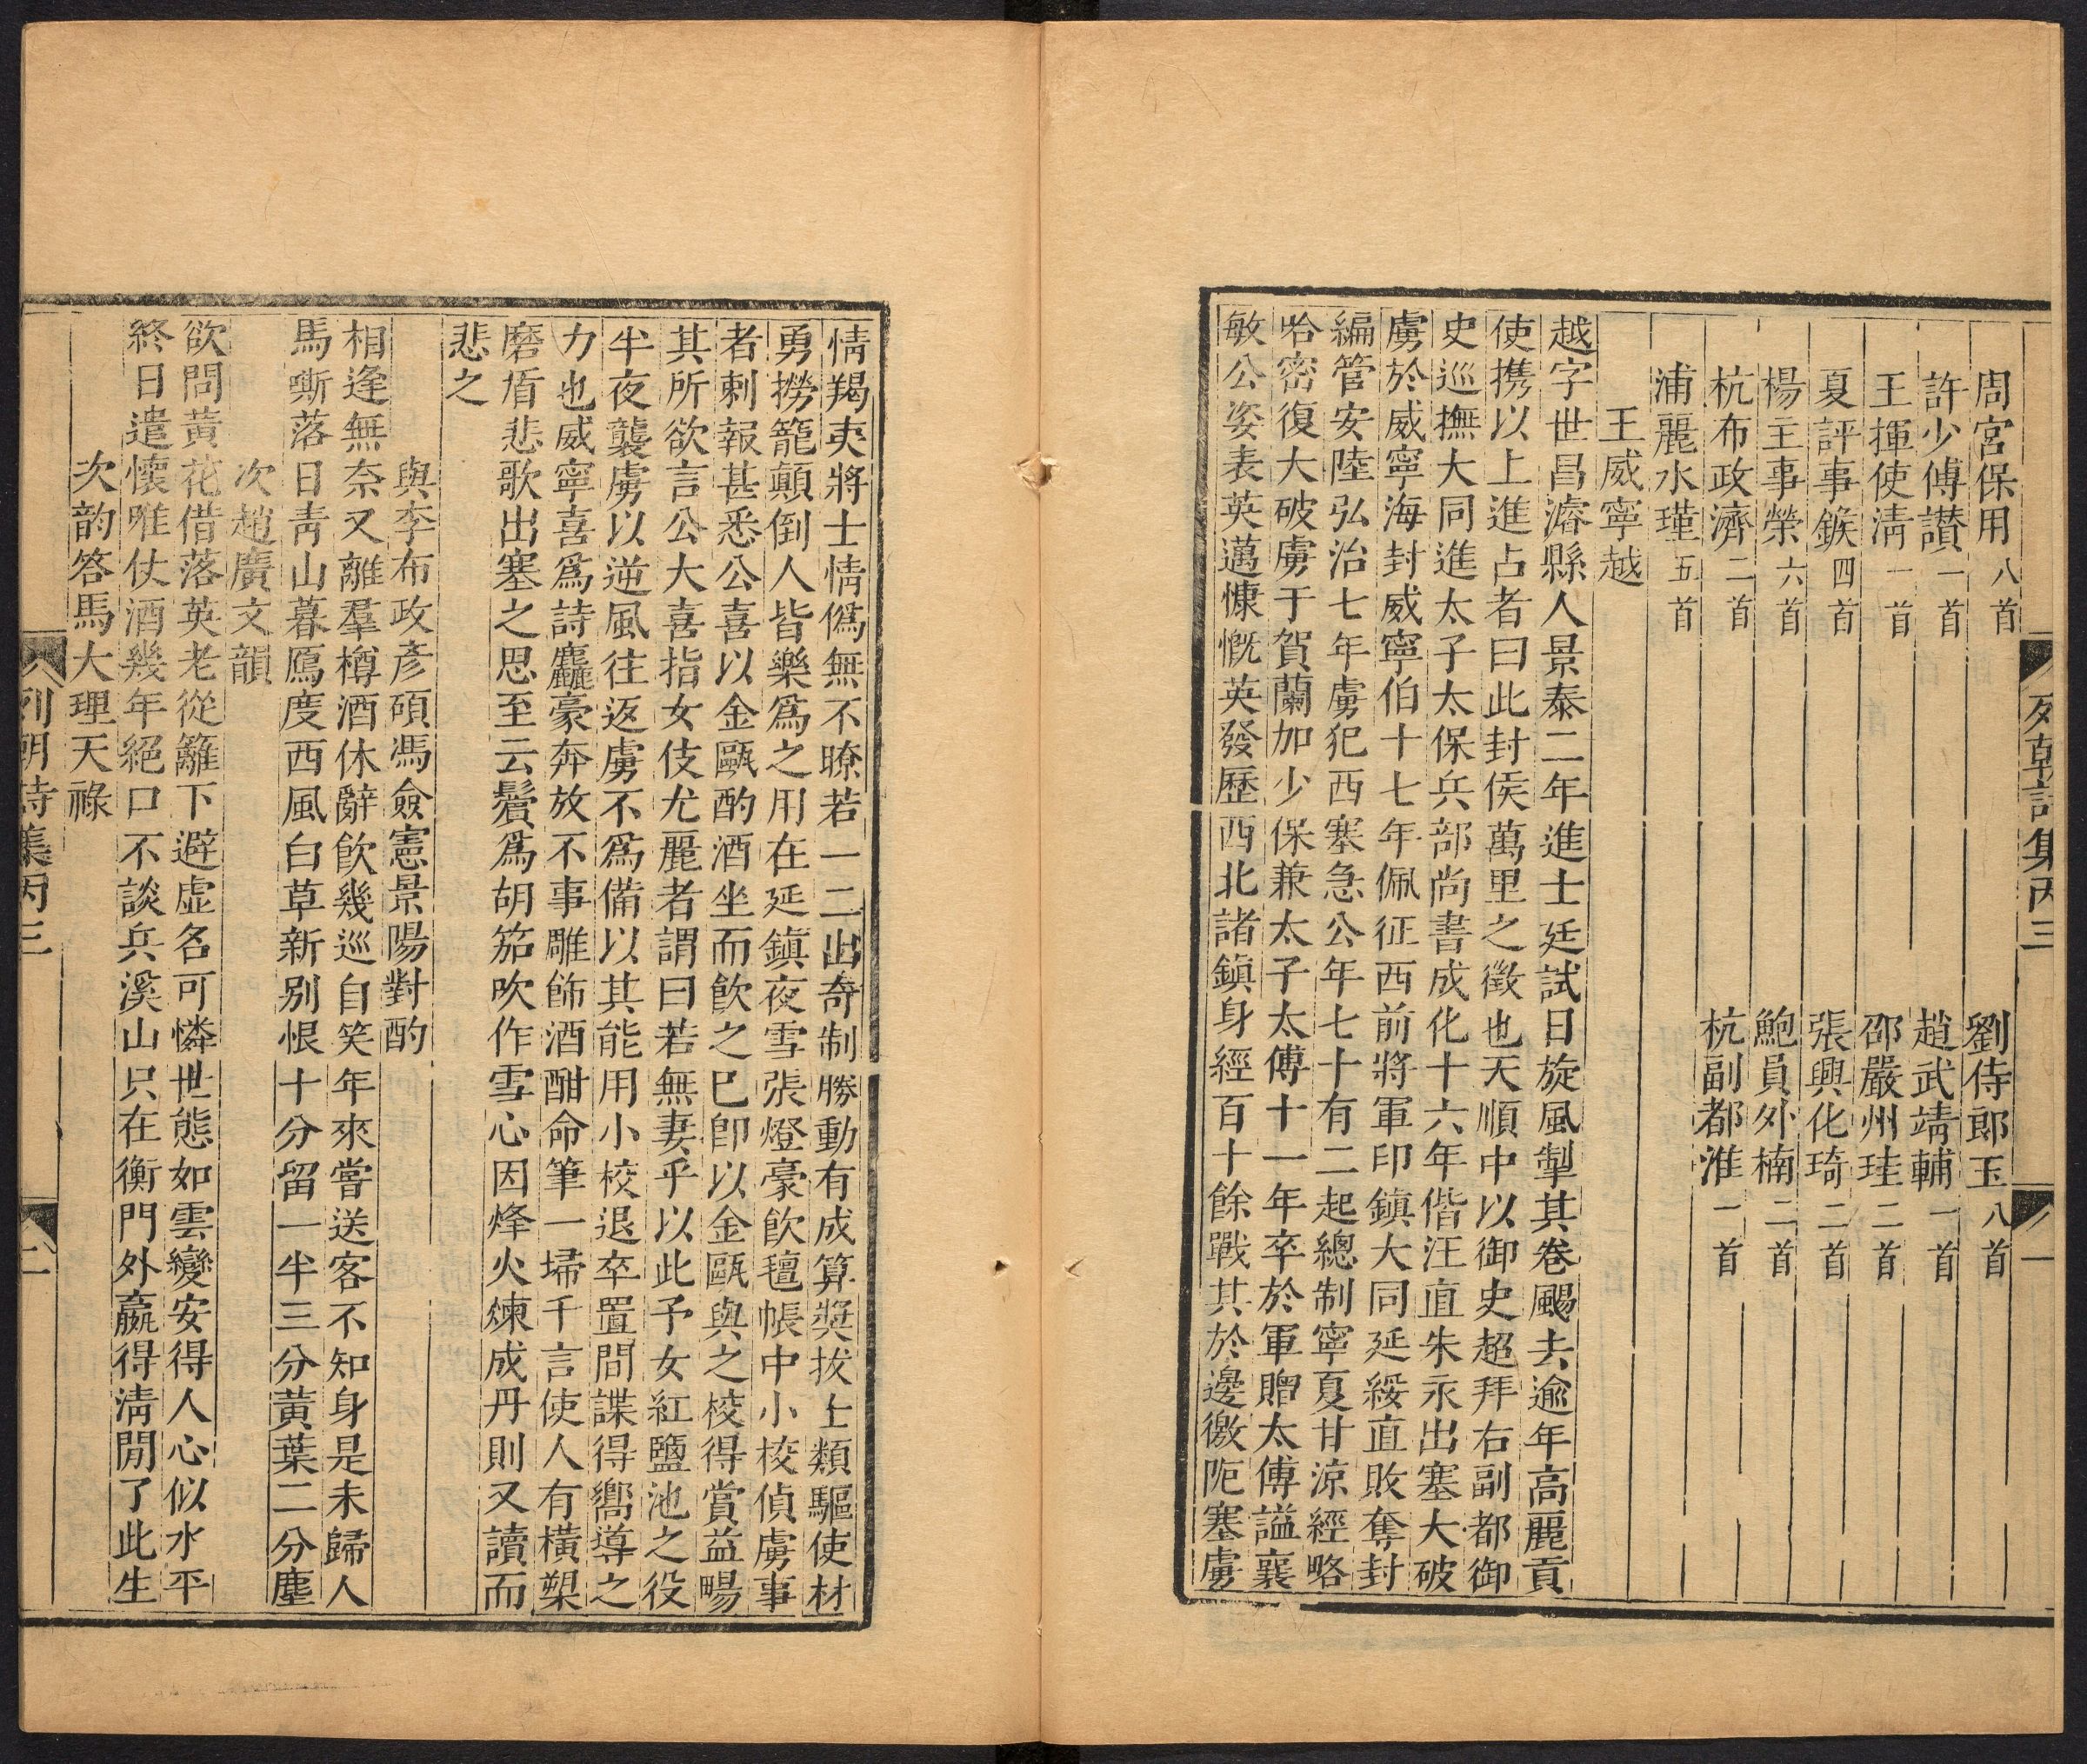 列朝詩集丙三
一
周宮保用八首
劉侍郎玉八首
許少傅讃一首
趙武靖輔一首
王揮使淸一首
邵嚴州珪二首
夏評事鍭四首
張興化琦二首
楊主事榮六首
鮑員外楠二首
杭布政濟二首
杭副都淮一首
浦麗水瑾五首
王威寧越
越字世昌濬縣人景泰二年進士廷試日旋風掣其卷颺去逾年高麗貢
使携以上進占者曰此封侯萬里之徵也天順中以御史超拜右副都御
史巡撫大同進太子太保兵部尚書成化十六年偕汪直朱永出塞大破
虜於威寧海封威寧伯十七年佩征西前將軍印鎮大同延綏直敗奪封
編管安陸弘治七年虜犯西塞急公年七十有二起總制寧夏甘涼經略
哈密復大破虜于賀蘭加少保兼太子太傅十一年卒於軍贈太傅謚襄
敏公姿表英邁慷慨英發歷西北諸鎮身經百十餘戰其於邊徼阨塞虜
情羯夷將士情僞無不瞭若一二出奇制勝動有成算奬拔士類驅使材
勇撈籠顛倒人皆樂爲之用在延鎮夜雪張燈豪飲氊帳中小校偵虜事
者剌報甚悉公喜以金甌酌酒坐而飲之巳卽以金甌與之校得賞益暢
其所欲言公大喜指女伎尤麗者謂曰若無妻乎以此予女紅鹽池之役
半夜襲虜以逆風往返虜不爲備以其能用小校退卒置間諜得嚮導之
力也威寧喜爲詩麤豪奔放不事雕飾酒酣命筆一埽千言使人有橫槊
磨盾悲歌出塞之思至云鬢爲胡笳吹作雪心因烽火煉成丹則又讀而
悲之
與李布政彥碩馮僉憲景陽對酌
相逢無奈又離羣樽酒休辭飲幾巡自笑年來嘗送客不知身是未歸人
馬嘶落日靑山暮鴈度西風白草新別恨十分留一半三分黃葉二分塵
次趙廣文韻
欲問黃花借落英老從籬下避虛名可憐世態如雲變安得人心似水平
終日遣懷唯仗酒幾年絕口不談兵溪山只在衡門外贏得淸閒了此生
次韵答馬大理天祿
列朝詩集丙三
二